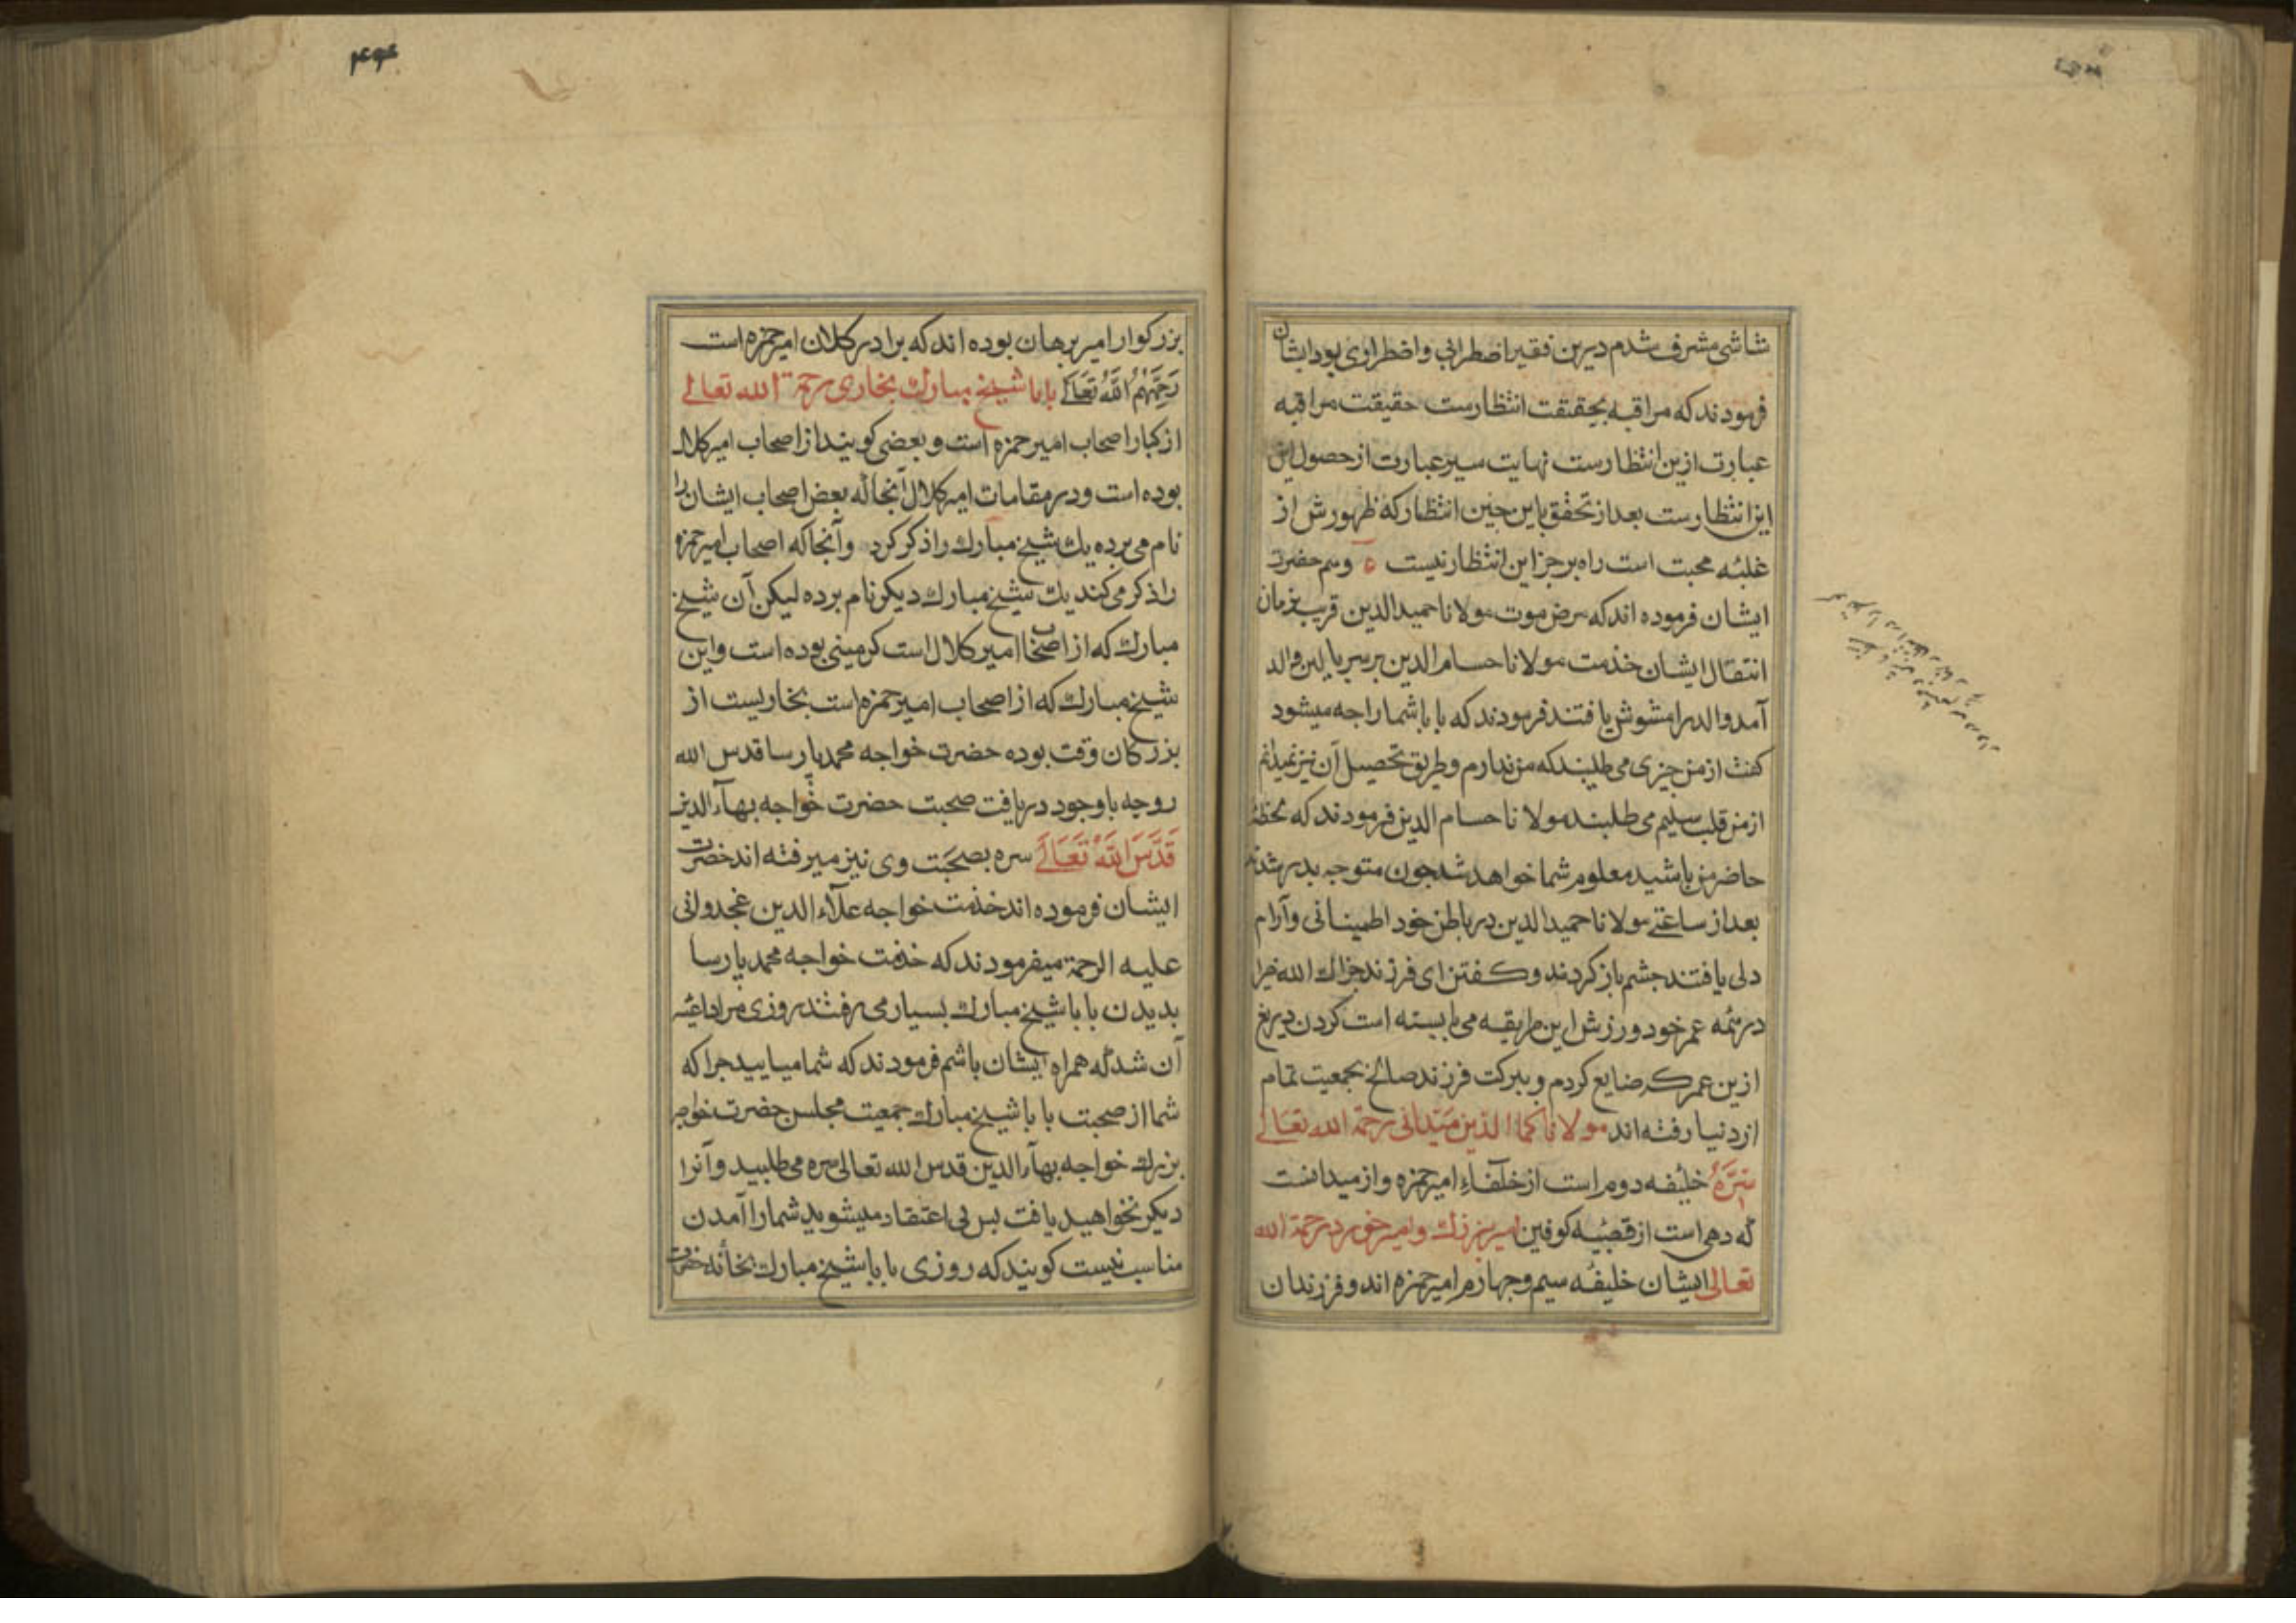 شاشی مشرف شدم درین فقیر اضطرابی و اضطراری بود ایشان
فرمودند که مراقبه بحقیقت انتظارست حقیقت مراقبه
عبارت ازین انتظارست نهایت سیر عبارت از حصول این
این انتظارست بعد از تحقق باین چنین انتظار که ظهورش از
غلبه محبت است راه بر جز این انتظار نیست وسم حضرت
ایشان فرموده اند که مرض موت مولانا حمیدالدین قریب بزمان
انتقال ایشان خدمت مولانا حسام الدین بر سر بالین والد
آمد والد را مشوش یافتند فرمودند که بابا شما را جه میشود
کفت از من جیزی می طلبند که من ندارم و طریق تحصیل آن نیز نمیدانم
از من قلب سلیم می طلبند مولانا حسام الدین فرمودند که لحظهٔ
حاضر من باشید معلوم شما خواهد شد جون متوجه بدر شدند
بعد از ساعتی مولانا حمیدالدین در باطن خود اطمینانی و آرام
دلی یافتند جشم باز کردند و کفتن ای فرزند جزاك الله خیرا
در همه عمر خود ورزش این طریقه می بایسته است کردن دریغ
ازین عمر که ضایع کردم و ببرکت فرزند صالح بجمعیت تمام
از دنیا رفته اند مولانا کمال الدین میدانی رحمة الله تعالی
سره خلیفه دوم است از خلفاء امیر حمزه و از میدانست
که دهی است از قصبه کوفین امیر بزرك و امیر خورد رحمة الله
تعالی ایشان خلیفه سیم و جهارم امیر حمزه اند و فرزندان
۴۶۴
بزرکوار امیر برهان بوده اند که برادر کلان امیر حمزه است
رحمهم الله تعالی بابا شیخ مبارك بخاری رحمة الله تعالی
از کبار اصحاب امیر حمزه است و بعضی کویند از اصحاب امیر کلال
بوده است و در مقامات امیر کلال آنجا که بعض اصحاب ایشان را
نام می برده یك شیخ مبارك را ذکر کرد و آنجا که اصحاب امیر حمزه
را ذکر می کند یك شیخ مبارك دیکر نام برده لیکن آن شیخ
مبارك که از اصحاب امیر کلال است کرمینی بوده است و این
شیخ مبارك که از اصحاب امیر حمزه است بخاریست از
بزرکان وقت بوده حضرت خواجه محمد پارسا قدس الله
روحه با وجود دریافت صحبت حضرت خواجه بهآءالدین
قدس الله تعالی سره بصحبت وی نیز میرفته اند حضرت
ایشان فرموده اند خدمت خواجه علآءالدین غجدوانی
علیه الرحمة میفرمودند که خدمت خواجه محمد پارسا
بدیدن بابا شیخ مبارك بسیار می رفتند روزی مرا داعیهٔ
آن شد که همراه ایشان باشم فرمودند که شما میایید جرا که
شما از صحبت بابا شیخ مبارك جمعیت مجلس حضرت خواجه
بزرك خواجه بهآءالدین قدس الله تعالی سره می طلبید و آنرا
دیکر نخواهید یافت بس بی اعتقاد میشوید شما را آمدن
مناسب نیست کویند که روزی بابا شیخ مبارك بخانه حضرت